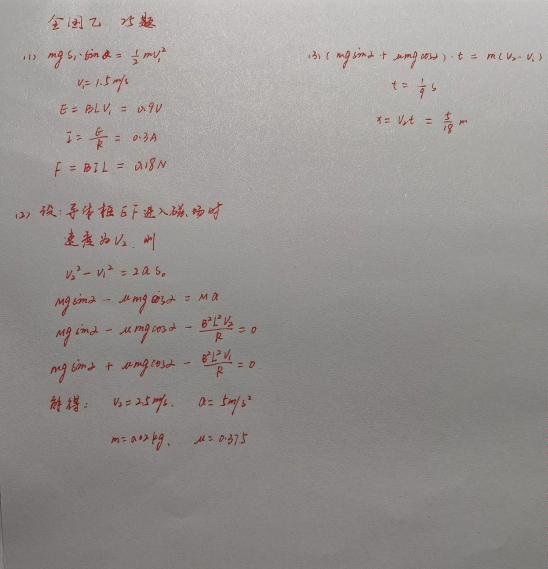 全国乙 25题
(1) mgs₁·sinα = ½mv₁²
v₁=1.5m/s
E = BLV₁ = 0.9V
I = E/R = 0.3A
F = BIL = 0.18N
(2) 设:导体框EF进入磁场时
速度为V₂ 则
v₂² - v₁² = 2as₀
Mgsinα - μmgcosα = Ma
Mgsinα - μmgcosα - B²L²V₂/R = 0
mgsinα + μmgcosα - B²L²V₁/R = 0
解得: V₂=2.5m/s. a=5m/s²
m=0.02kg, μ=0.375
(3) (mgsinα + μmgcosα)·t = m(V₂-V₁)
t = 1/9 s
x = V₂t = 5/18 m